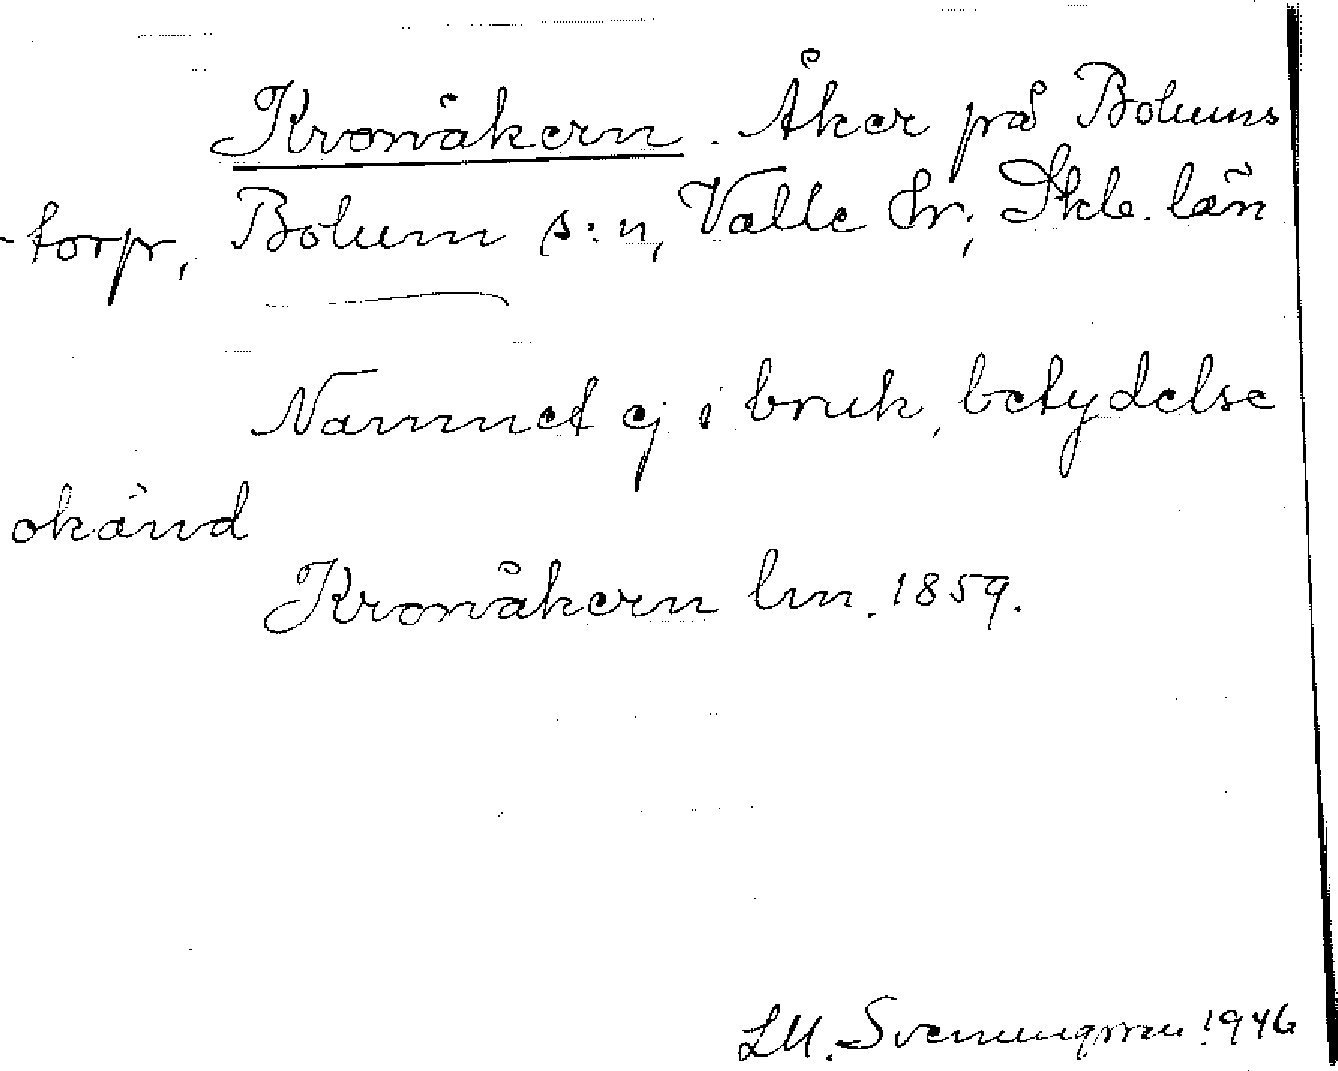 Kronåkern. Åker på Bolums
-torp, Bolum s:n, Valle hr, Skb. län
Namnet ej i bruk, betydelse
okänd
Kronåkern lm. 1859.
LM. Svenungsson 1946